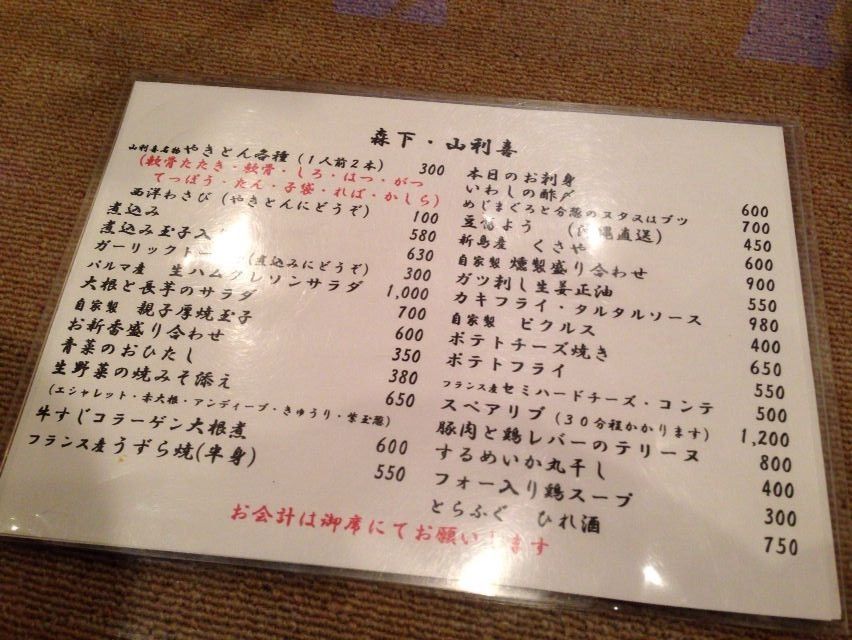 森下・山利喜
山利喜名物やきとん各種(1人前2本) 300
(軟骨たたき・軟骨・しろ・はつ・がつ
てっぽう・たん・子袋・れば・かしら)
西洋わさび(やきとんにどうぞ) 100
煮込み 580
煮込み玉子入 630
ガーリックト (煮込みにどうぞ) 300
パルマ産 生ハムクレソンサラダ 1,000
大根と長芋のサラダ 700
自家製 親子厚焼玉子 600
お新香盛り合わせ 350
青菜のおひたし 380
生野菜の焼みそ添え 650
(エシャレット・赤大根・アンディーブ・きゅうり・紫玉葱)
牛すじコラーゲン大根煮 600
フランス産うずら焼(半身) 550
本日のお刺身
いわしの酢〆 600
めじまぐろと分葱のヌタスはブツ 700
豆腐よう (沖縄直送) 450
新島産 くさや 600
自家製 燻製盛り合わせ 900
ガツ刺し生姜正油 550
カキフライ・タルタルソース 980
自家製 ピクルス 400
ポテトチーズ焼き 650
ポテトフライ 550
フランス産セミハードチーズ・コンテ 500
スペアリブ(30分程かかります) 1,200
豚肉と鶏レバーのテリーヌ 800
するめいか丸干し 400
フォー入り鶏スープ 300
とらふぐ ひれ酒 750
お会計は御席にてお願いします